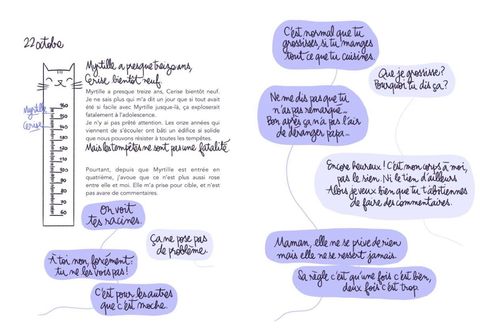 22 octobre
Myrtille a presque treize ans,
Cerise bientôt neuf.
Myrtille a presque treize ans, Cerise bientôt neuf.
Je ne sais plus qui m'a dit un jour que si tout avait
été si facile avec Myrtille jusque-là, ça exploserait
fatalement à l'adolescence.
Je n'y ai pas prêté attention. Les onze années qui
viennent de s'écouler ont bâti un édifice si solide
que nous pouvons résister à toutes les tempêtes.
Mais les tempêtes ne sont pas une fatalité.
Pourtant, depuis que Myrtille est entrée en
quatrième, j'avoue que ce n'est plus aussi rose
entre elle et moi. Elle m'a prise pour cible, et n'est
pas avare de commentaires.
Myrtille
Cerise
160
150
140
130
120
110
100
90
80
70
60
On voit
tes racines.
Ça ne pose pas
de problème.
À toi non, forcément :
tu ne les vois pas !
C'est pour les autres
que c'est moche.
C'est normal que tu
grossisses, si tu manges
tout ce que tu cuisines.
Que je grossisse ?
Pourquoi tu dis ça ?
Ne me dis pas que tu
n'as pas remarqué…
Bon après ça n'a pas l'air
de déranger papa…
Encore heureux ! C'est mon corps à moi,
pas le sien. Ni le tien d'ailleurs.
Alors je veux bien que tu t'abstiennes
de faire des commentaires.
Maman, elle ne se prive de rien
mais elle ne se ressert jamais.
Sa règle c'est qu'une fois c'est bien,
deux fois c'est trop.